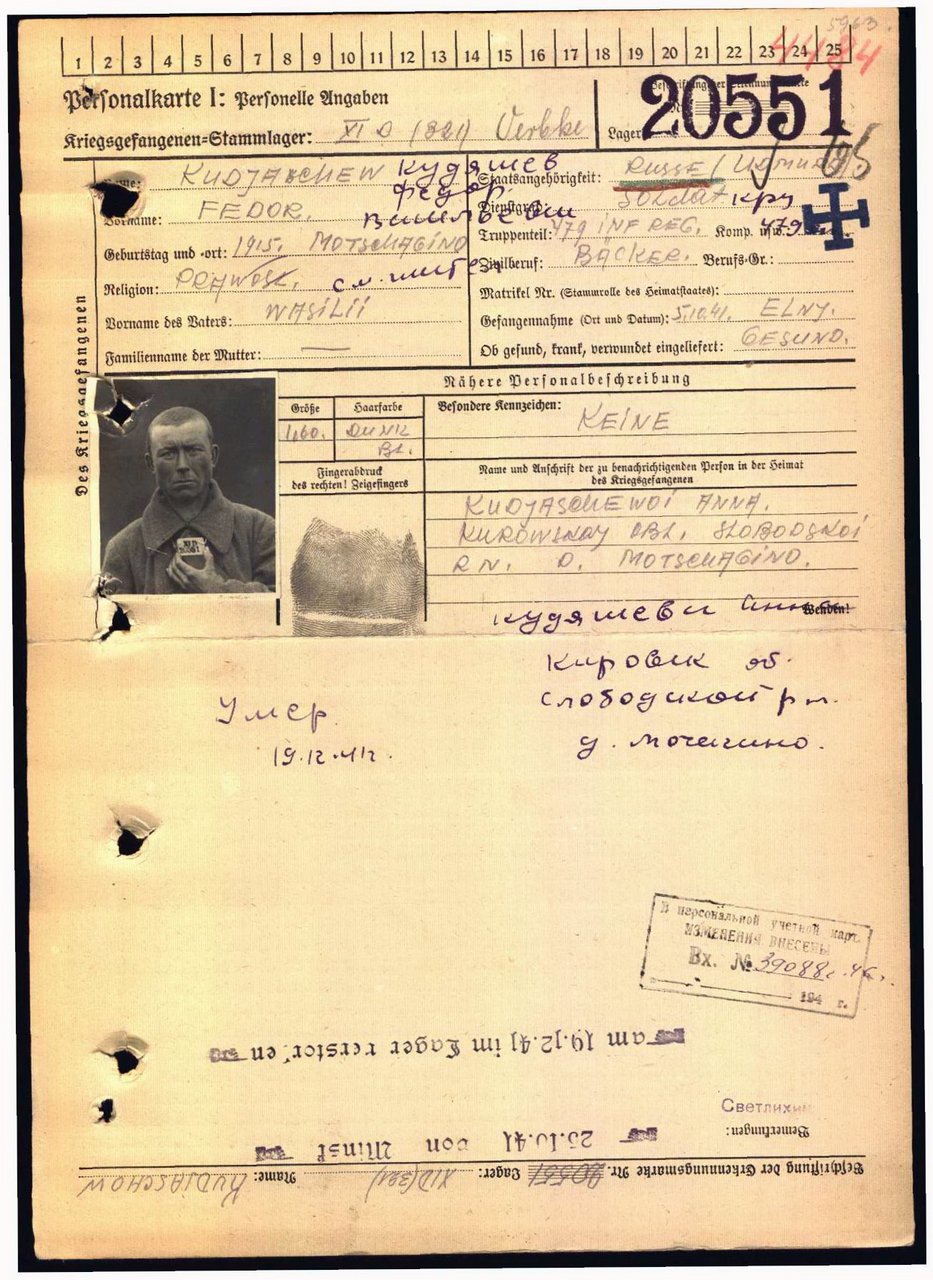 5963.
1 2 3 4 5 6 7 8 9 10 11 12 13 14 15 16 17 18 19 20 21 22 23 24 25
4484
Personalkarte I: Personelle Angaben
Kriegsgefangenen=Stammlager: XI D (321) Oerbke
Lager
20551
Des Kriegsgefangenen
Name: KUDJASCHEW Кудяшев
Федор
Vorname: FEDOR. Васильевич
Geburtstag und -ort: 1915. MOTSCHAGINO
Religion: PRAWOSL.
Vorname des Vaters: WASILII
Familienname der Mutter: —
Staatsangehörigkeit: RUSSE /
Dienstgrad: SOLDAT кр
Truppenteil: 479 INF REG. Komp. usw.: 479
Zivilberuf: BÄCKER. Berufs-Gr.:
Matrikel Nr. (Stammrolle des Heimatstaates):
Gefangennahme (Ort und Datum): 5.10.41. ELNJ.
Ob gesund, krank, verwundet eingeliefert: GESUND.
Nähere Personalbeschreibung
Größe Haarfarbe Besondere Kennzeichen:
1,60. DUNK BL. KEINE
Fingerabdruck
des rechten! Zeigefingers
Name und Anschrift der zu benachrichtigenden Person in der Heimat
des Kriegsgefangenen
KUDJASCHEWOI ANNA.
KUROWSKAY OBL. SLOBODSKOI
RN. D. MOTSCHAGINO.
Wenden!
Кудяшеви Анна
Кировск об.
Слободской р.н.
д. Мочагино.
Умер.
19.12.41г.
В персональной учетной карт.
ИЗМЕНЕНИЯ ВНЕСЕНЫ
Вх. № 39088с. 46.
194 г.
am 19.12.41 im Lager verstorben
Светлихин
Bemerkungen:
25.10.41 von Minsk
Beschriftung der Erkennungsmarke Nr. 20551 Lager: XI D (321) Name: KUDJASCHOW